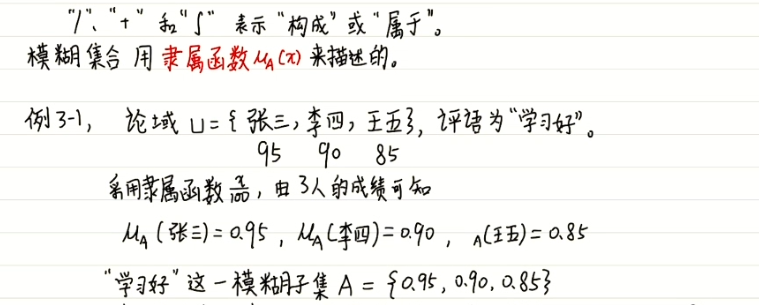 "/"、"+" 和"∫" 表示"构成"或"属于"。
模糊集合 用 隶属函数μA(x) 来描述的。
例3-1, 论域 U={张三,李四,王五}, 评语为"学习好"。
95 90 85
采用隶属函数 x/100, 由3人的成绩可知
μA(张三)=0.95, μA(李四)=0.90, A(王五)=0.85
"学习好"这一模糊子集 A = {0.95, 0.90, 0.85}